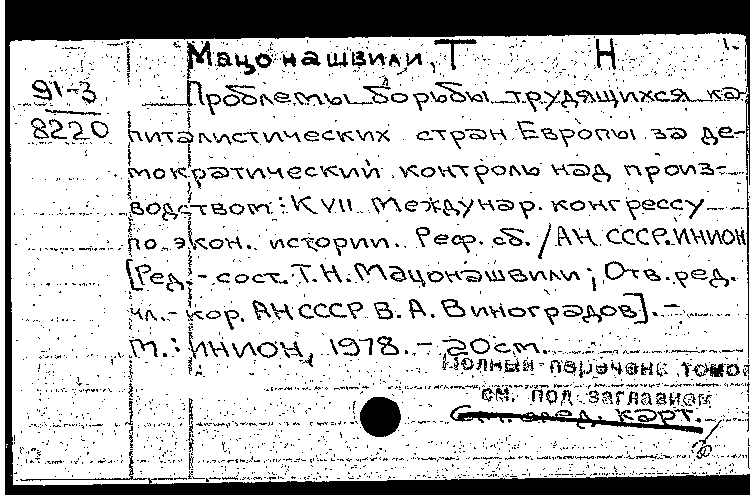 Мацонашвили, Т Н
91-3
8220
Проблемы борьбы трудящихся ка-
питалистических стран Европы за де-
мократический контроль над произ-
водством: К VII Междунар. конгрессу
по экон. истории. Реф. сб. / АН СССР. ИНИОН
[Ред.-сост. Т.Н. Мацонашвили; Отв. ред.
чл.-кор. АН СССР В. А. Виноградов]. -
М.: ИНИОН, 1978. - 20см.
Полный перечень томов
см. под заглавием
См. след. карт.